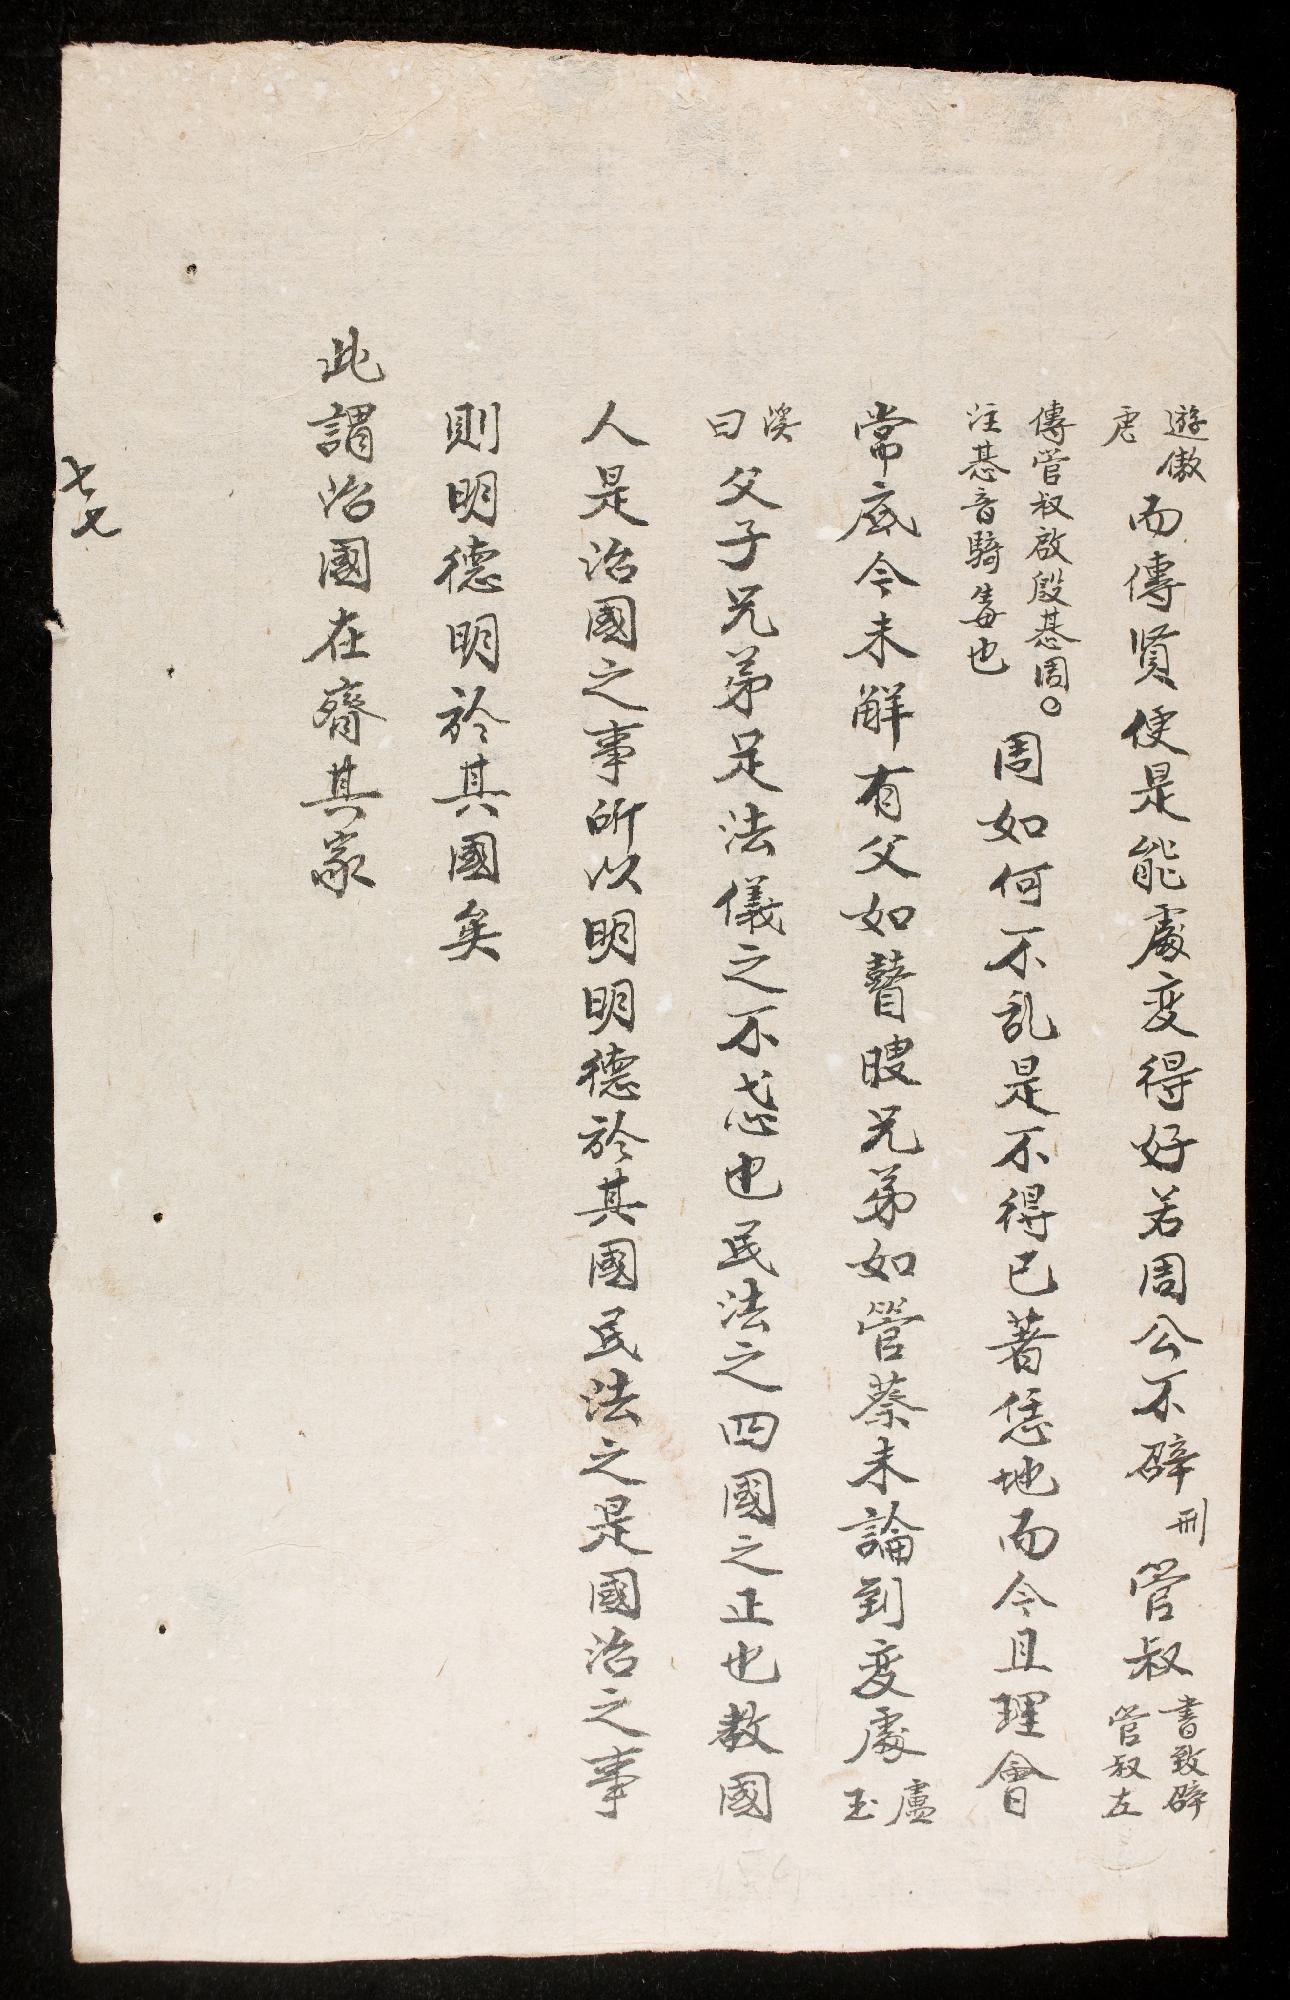 遊傲虐而傳賢便是能處変得好若周公不辟刑管叔書致辟管叔左
傳管叔啟殷惎周。注惎音騎毒也周如何不乱是不得已著恁地而今且理會
常底今未解有父如瞽瞍兄弟如管蔡未論到変處盧玉
溪曰父子兄弟足法儀之不忒也民法之四國之正也教國
人是治國之事所以明明德於其國民法之是國治之事
則明德明於其國矣
此謂治國在齊其家
七七